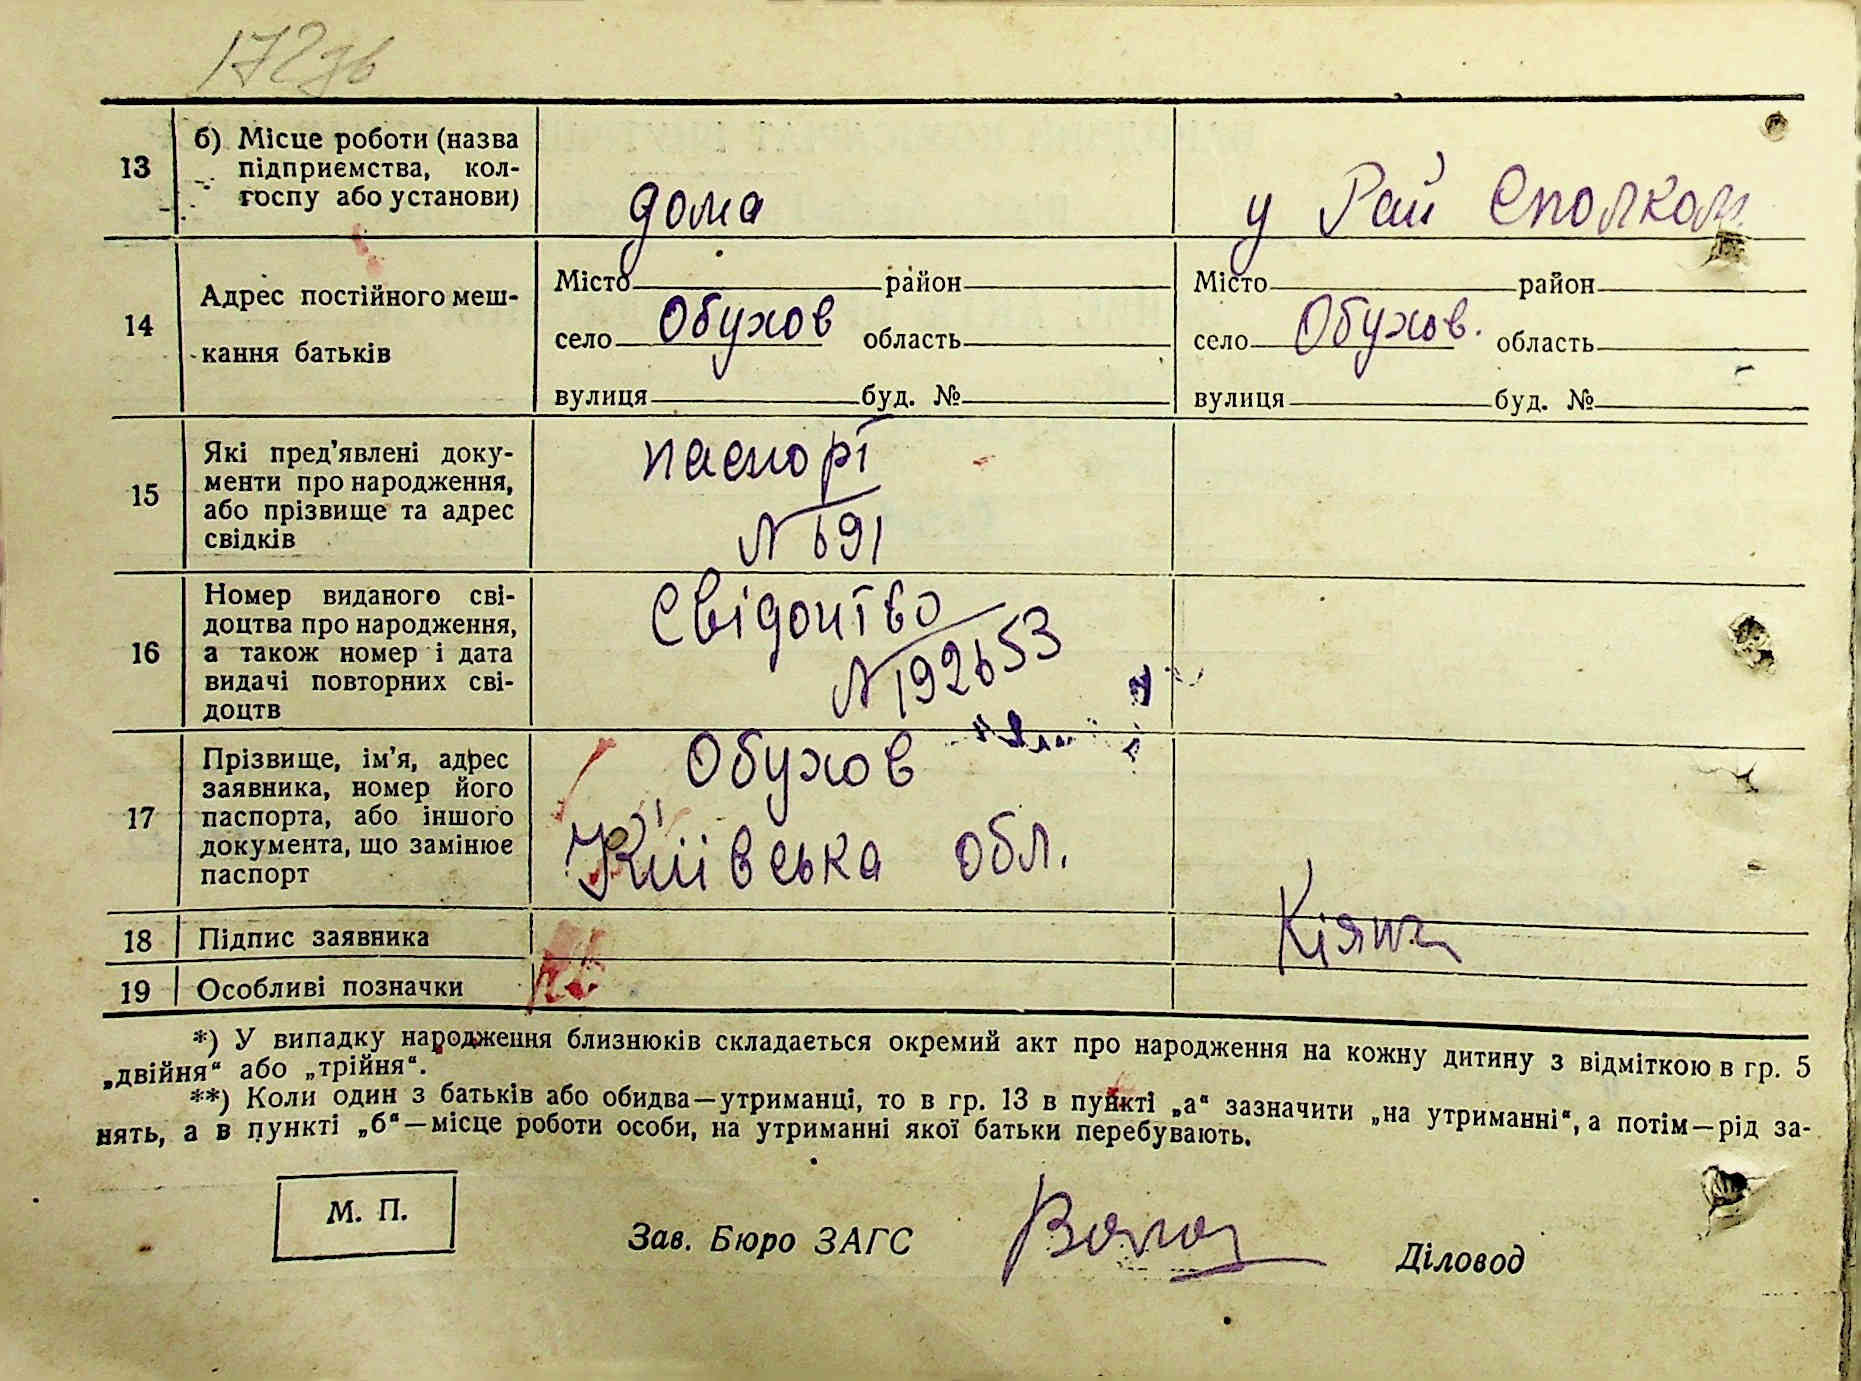 172зв
13
б) Місце роботи (назва
підприємства, кол-
госпу або установи)
дома
у Рай Сполком
14
Адрес постійного меш-
кання батьків
Місто район
село Обухов область
вулиця буд. №
Місто район
село Обухов. область
вулиця буд. №
15
Які пред'явлені доку-
менти про народження,
або прізвище та адрес
свідків
паспорт
N 691
16
Номер виданого сві-
доцтва про народження,
а також номер і дата
видачі повторних сві-
доцтв
Свідоцтво
N 192653
17
Прізвище, ім'я, адрес
заявника, номер його
паспорта, або іншого
документа, що замінює
паспорт
Обухов
Київська обл.
18
Підпис заявника
19
Особливі позначки
*) У випадку народження близнюків складається окремий акт про народження на кожну дитину з відміткою в гр. 5
„двійня“ або „трійня“.
**) Коли один з батьків або обидва—утриманці, то в гр. 13 в пункті „а“ зазначити „на утриманні“, а потім—рід за-
нять, а в пункті „б“—місце роботи особи, на утриманні якої батьки перебувають.
М. П.
Зав. Бюро ЗАГС
Діловод